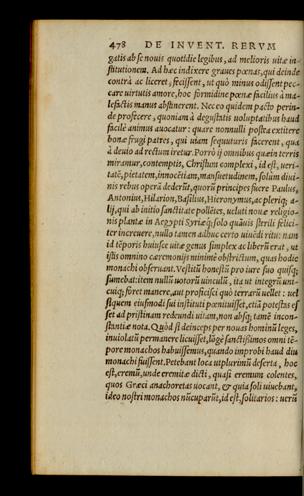 478 DE INVENT. RERVM
gatis ab se nouis quotidie legibus, ad melioris uitæ in-
stitutionem. Ad hæc indixere graues pœnas, qui deinde
contrà ac liceret, fecissent, ut quò minus odissent pec-
care uirtutis amore, hoc formidine pœnæ facilius à ma-
lefactis manus abstinerent. Nec eo quidem pacto perin-
de profecere, quoniam à degustatis uoluptatibus haud
facilè animus auocatur: quare nonnulli postea extitere
bonæ frugi patres, qui uiam sequuturis facerent, qua
à deuio ad rectum iretur. Porrò ij omnibus quæ in terris
miramur, contemptis, Christum complexi, id est, ueri-
tatē, pietatem, innocētiam, mansuetudinem, solùm diui-
nis rebus operā dederūt, quorū principes fuere Paulus,
Antonius, Hilarion, Basilius, Hieronymus, ac pleriq; a-
lij, qui ab initio sanctitate pollētes, ueluti nouæ religio-
nis plantæ in Aegypti Syriæq́; solo quāuis sterili felici-
ter increuere, nullo tamen adhuc certo uiuēdi ritu: nam
id tēporis huiusce uitæ genus simplex ac liberū erat, ut
istis omnino cæremonijs nimimè obstrictum, quas hodie
monachi obseruant. Vestitū honestū pro iure suo quisq;
sumebat: item nullū uotorū uinculū, ita ut integrū unī-
cuiq; foret manere, aut proficisci quò terrarū uellet: uel
si quem eiusmodi sui instituti pœnituisset, etiā potestas es-
set ad pristinam redeundi uitam, non absq; tamē incon-
stantiæ nota. Quòd si deinceps per nouas hominū leges,
inuiolatū permanere licuisset, lōgè sanctissimos omni tē-
pore monachos habuissemus, quando improbi haud diu
monachi fuissent. Petebant loca utplurimū deserta, hoc
est, eremū, unde eremitæ dicti, quasi eremum colentes,
quos Græci anachoretas uocant, & quia soli uiuebant,
ideo nostri monachos nūcuparūt, id est, solitarios: uerū